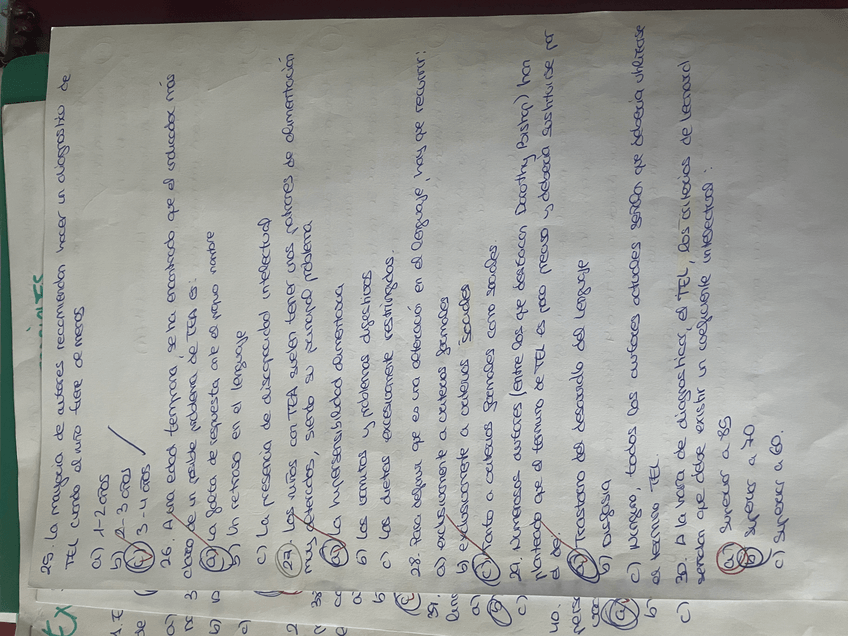 25. La mayoría de autores recomiendan hacer un diagnóstico de
TEL cuando el niño tiene al menos
a) 1-2 años
b) 2-3 años
c) 3-4 años
26. A una edad temprana, se ha encontrado que el indicador más
claro de un posible problema de TEA es:
a) La falta de respuesta ante el propio nombre
b) Un retraso en el lenguaje
c) La presencia de discapacidad intelectual
27. Los niños con TEA suelen tener unos patrones de alimentación
muy alterados, siendo su principal problema
a) La hipersensibilidad alimentaria
b) Los vómitos y problemas digestivos
c) Las dietas excesivamente restringidas.
28. Para definir que es una alteración en el lenguaje, hay que recurrir:
a) exclusivamente a criterios formales
b) exclusivamente a criterios sociales
c) Tanto a criterios formales como sociales.
29. Numerosos autores (entre los que destacan Dorothy Bishop) han
planteado que el término de TEL es poco preciso y debería sustituirse por
el de:
a) Trastorno del desarrollo del lenguaje
b) Disfasia
c) Ninguno, todos los autores actuales señalan que debería utilizarse
el término TEL.
30. A la hora de diagnosticar el TEL, los criterios de Leonard
señalan que debe existir un coeficiente intelectual:
a) Superior a 85
b) Superior a 70
c) Superior a 60.